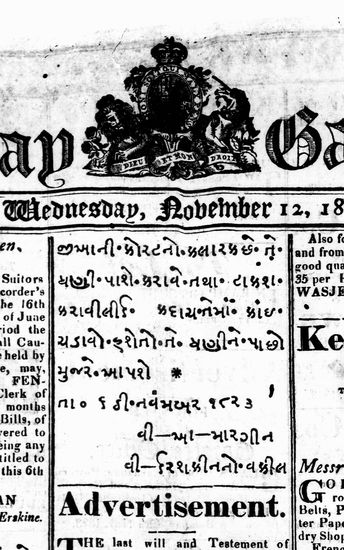 ay Ga
DIEU ET MON DROIT
Wednesday, November 12, 18
en.
Suitors
corder's
he 16th
of June
riod the
all Cau-
held by
e, may,
FEN-
Clerk of
months
Bills, of
vered to
eing any
titled to
this 6th
AN
Erskine.
ધણી પાશે કરાવે તથા ટાકશા
કરાવી લીઈ કદાચ તેમાં કાંઇ
ચડાવો હશે તો તે ધણીને પાછો
મુજરે આપશે *
તા૦ ૬ ઠી નવંમબર ૧૮૨૩
વી-આ-મારગીન
Advertisement.
THE last will and Testement of
Also fo
and from
good qua
35 per H
WASJE
Ke
Messr
GO
ro
Belts, P
ter Pape
dry Shop
French